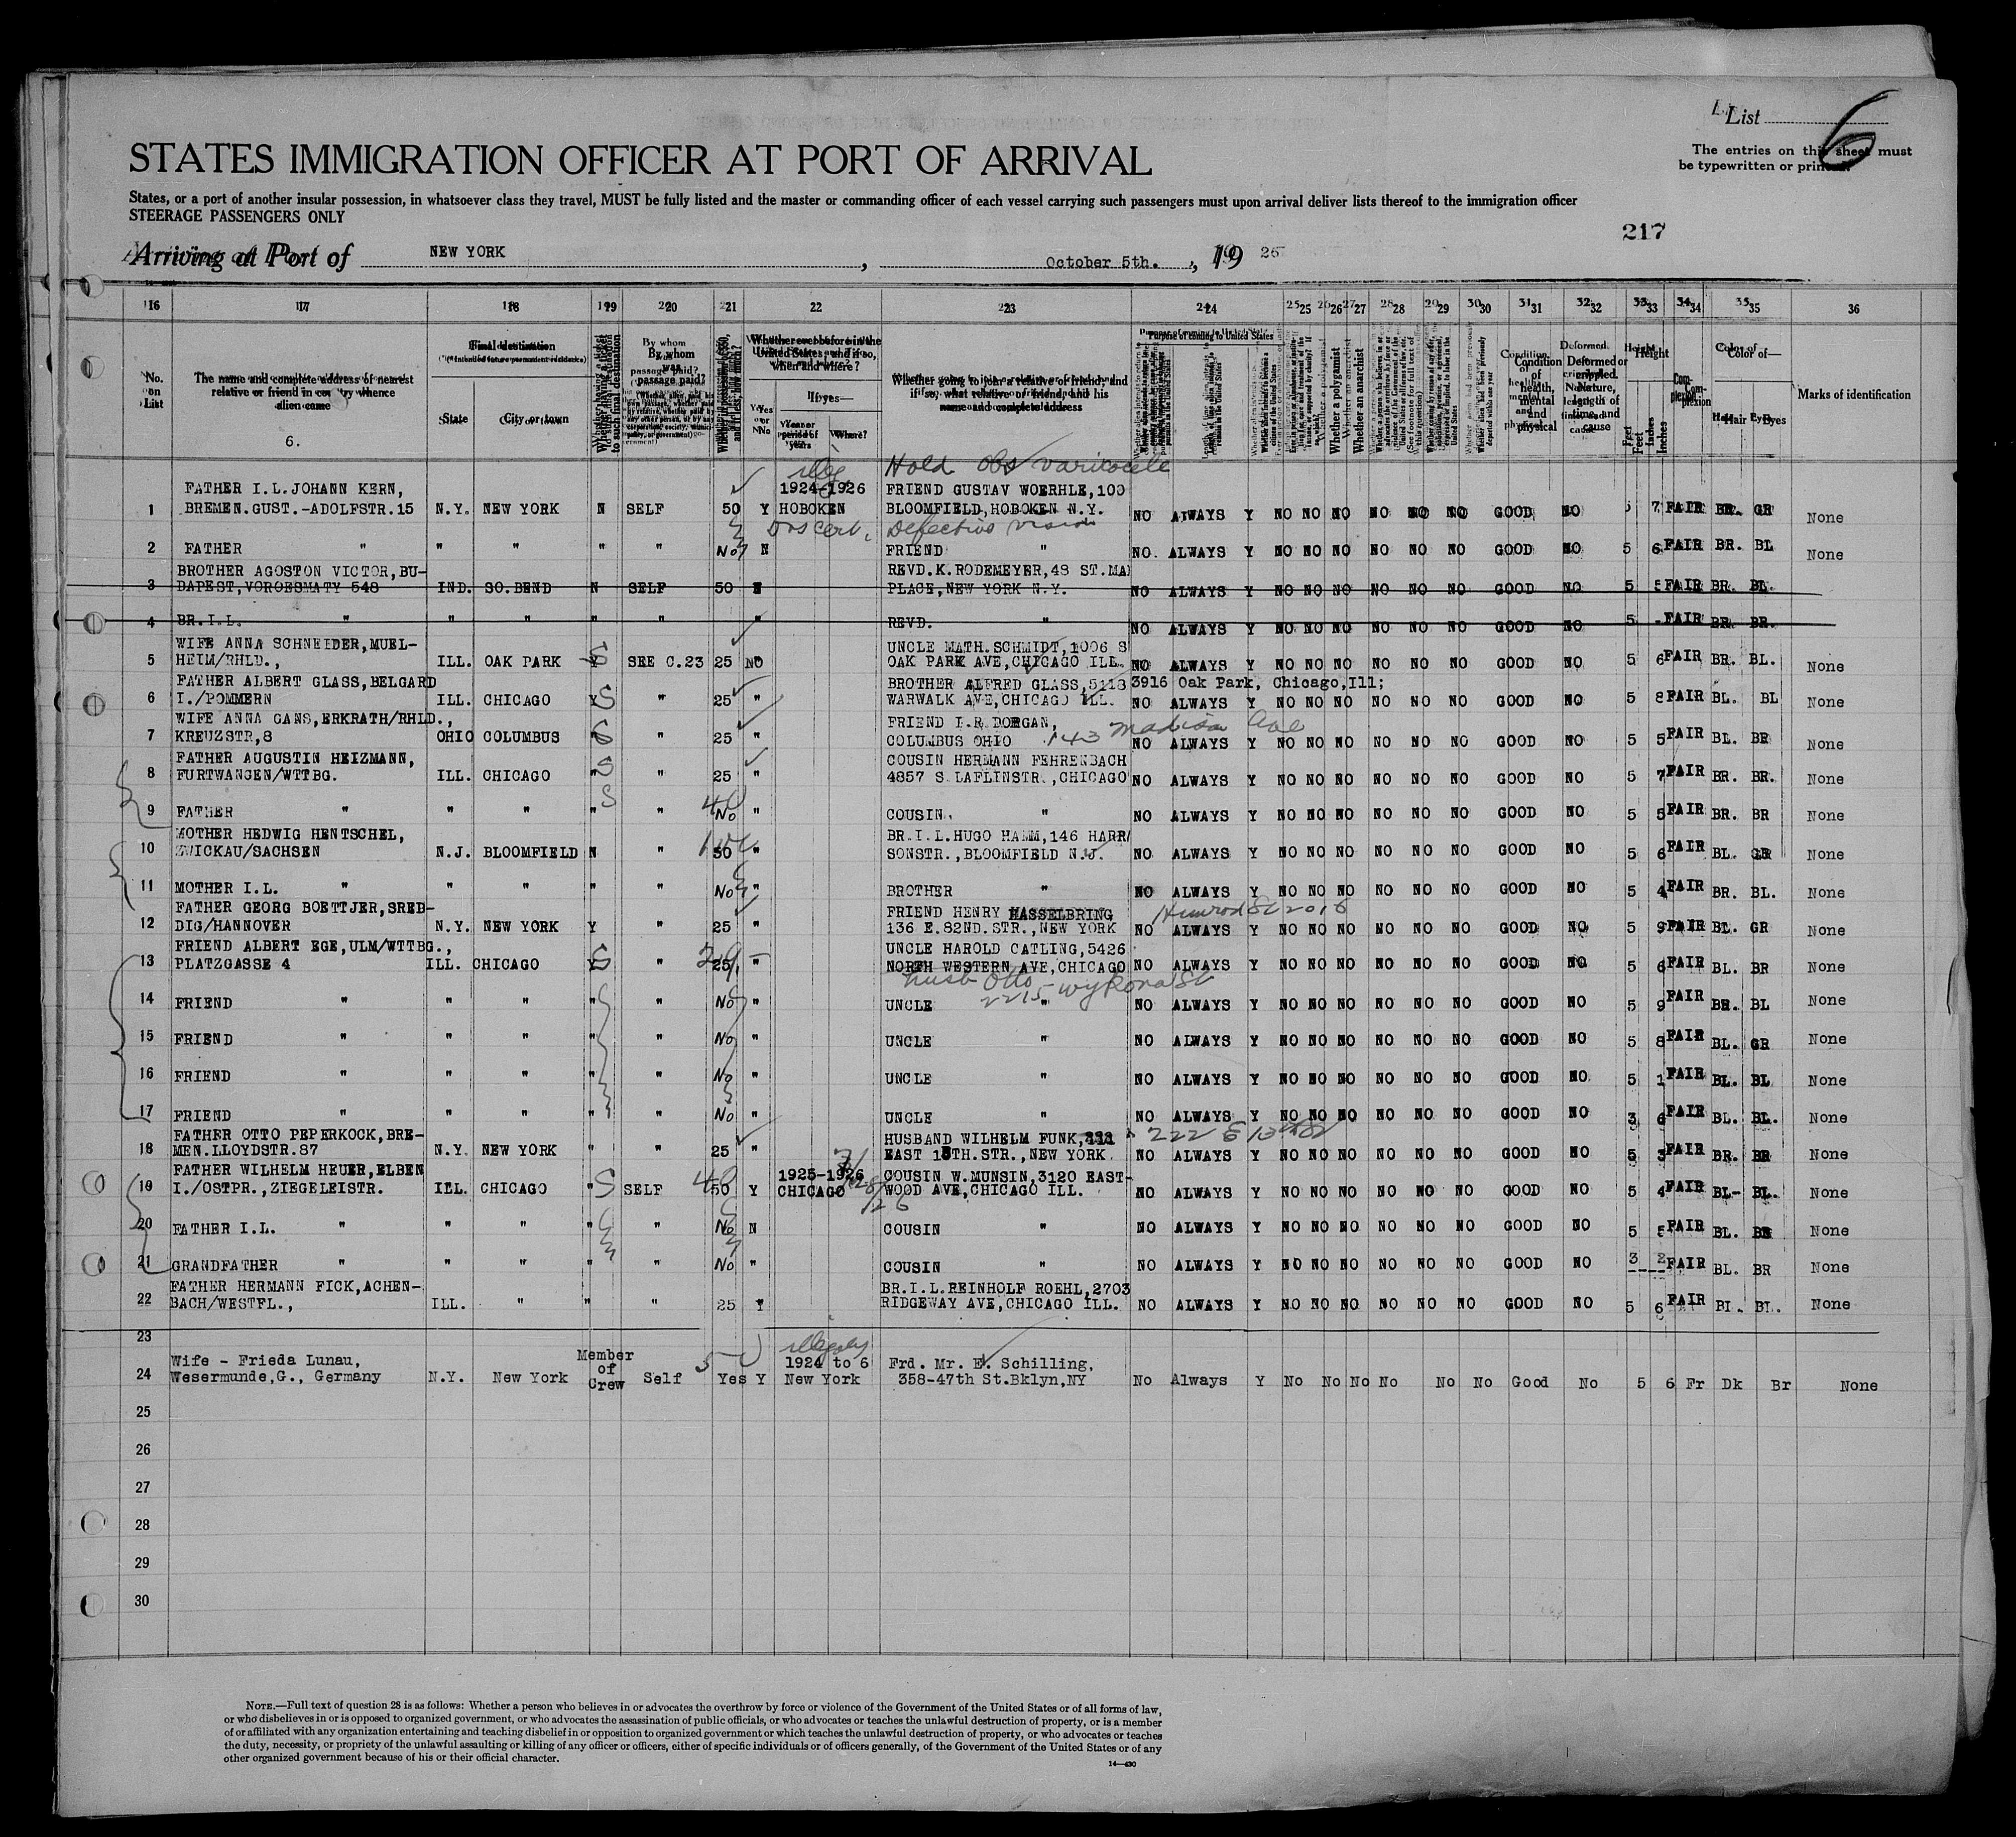 List 6
The entries on this sheet must
be typewritten or printed.
STATES IMMIGRATION OFFICER AT PORT OF ARRIVAL
States, or a port of another insular possession, in whatsoever class they travel, MUST be fully listed and the master or commanding officer of each vessel carrying such passengers must upon arrival deliver lists thereof to the immigration officer
STEERAGE PASSENGERS ONLY
217
Arriving at Port of NEW YORK, October 5th., 19 26
16 17 18 19 20 21 22 23 24 25 26 27 28 29 30 31 32 33 34 35 36
No. on List
The name and complete address of nearest relative or friend in country whence alien came
6.
Final destination
State City or town
By whom was passage paid?
Whether ever before in the United States, and if so, when and where?
Yes or No
If yes—
Year or period of years
Where?
Whether going to join a relative or friend, and if so, what relative or friend, and his name and complete address
Purpose of coming to United States
Whether a polygamist
Whether an anarchist
Condition of health, mental and physical
Deformed or crippled. Nature, length of time, and cause
Height
Feet Inches
Complexion
Color of—
Hair Eyes
Marks of identification
Hold Obs varicocele
FATHER I.L.JOHANN KERN, 1924-1926 FRIEND GUSTAV WOERHLE,100
1 BREMEN.GUST.-ADOLFSTR.15 N.Y. NEW YORK N SELF 50 Y HOBOKEN BLOOMFIELD,HOBOKEN N.Y. NO ALWAYS Y NO NO NO NO NO NO GOOD NO 5 7 FAIR BR. GR None
Defective vision
2 FATHER " " " " " No N FRIEND " NO. ALWAYS Y NO NO NO NO NO NO GOOD NO 5 6 FAIR BR. BL None
BROTHER AGOSTON VICTOR,BU- REVD.K.RODEMEYER,48 ST.MA
3 DAPEST,VOROESMATY 548 IND. SO.BEND N SELF 50 N PLACE,NEW YORK N.Y. NO ALWAYS Y NO NO NO NO NO NO GOOD NO 5 5 FAIR BR. BL.
4 BR.I.L. " " " " " " REVD. " NO ALWAYS Y NO NO NO NO NO NO GOOD NO 5 FAIR BR. BR.
WIFE ANNA SCHNEIDER,MUEL- UNCLE MATH.SCHMIDT,1006 S
5 HEIM/RHLD., ILL. OAK PARK S SEE C.23 25 NO OAK PARK AVE,CHICAGO ILL. NO ALWAYS Y NO NO NO NO NO NO GOOD NO 5 6 FAIR BR. BL. None
FATHER ALBERT GLASS,BELGARD BROTHER ALFRED GLASS,5118 3916 Oak Park, Chicago,Ill;
6 I./POMMERN ILL. CHICAGO Y S " 25 " WARWALK AVE,CHICAGO ILL. NO ALWAYS Y NO NO NO NO NO NO GOOD NO 5 8 FAIR BL. BL None
WIFE ANNA GANS,ERKRATH/RHLD., FRIEND I.R DORGAN,
7 KREUZSTR,8 OHIO COLUMBUS " S " 25 " COLUMBUS OHIO 143 Madison Ave NO ALWAYS Y NO NO NO NO NO NO GOOD NO 5 5 FAIR BL. BR None
FATHER AUGUSTIN HEIZMANN, COUSIN HERMANN FEHRENBACH
8 FURTWANGEN/WTTBG. ILL. CHICAGO " S " 25 " 4857 S LAFLINSTR.,CHICAGO NO ALWAYS Y NO NO NO NO NO NO GOOD NO 5 7 FAIR BR. BR. None
9 FATHER " " " " S " 40 No " COUSIN. " NO ALWAYS Y NO NO NO NO NO NO GOOD NO 5 5 FAIR BR. BR None
MOTHER HEDWIG HENTSCHEL, BR.I.L.HUGO HAMM,146 HARR
10 ZWICKAU/SACHSEN N.J. BLOOMFIELD N " 50 " SONSTR.,BLOOMFIELD N.J. NO ALWAYS Y NO NO NO NO NO NO GOOD NO 5 6 FAIR BL. GR None
11 MOTHER I.L. " " " " " No " BROTHER " NO ALWAYS Y NO NO NO NO NO NO GOOD NO 5 4 FAIR BR. BL. None
FATHER GEORG BOETTJER,SRED- FRIEND HENRY HASSELBRING Himrod St 2016
12 DIG/HANNOVER N.Y. NEW YORK Y " 25 " 136 E.82ND.STR.,NEW YORK NO ALWAYS Y NO NO NO NO NO NO GOOD NO 5 9 FAIR BL. GR None
FRIEND ALBERT EGE,ULM/WTTBG., UNCLE HAROLD CATLING,5426
13 PLATZGASSE 4 ILL. CHICAGO Y S " 25 " NORTH WESTERN AVE,CHICAGO NO ALWAYS Y NO NO NO NO NO NO GOOD NO 5 6 FAIR BL. BR None
husb Otto
2215
14 FRIEND " " " " " No " UNCLE " NO ALWAYS Y NO NO NO NO NO NO GOOD NO 5 9 FAIR BR. BL None
15 FRIEND " " " " " No " UNCLE " NO ALWAYS Y NO NO NO NO NO NO GOOD NO 5 8 FAIR BL. GR None
16 FRIEND " " " " " No " UNCLE " NO ALWAYS Y NO NO NO NO NO NO GOOD NO 5 1 FAIR BL. BL None
17 FRIEND " " " " " No " UNCLE " NO ALWAYS Y NO NO NO NO NO NO GOOD NO 3 6 FAIR BL. BL. None
FATHER OTTO PEPERKOCK,BRE- HUSBAND WILHELM FUNK, 222 E 13th St
18 MEN.LLOYDSTR.87 N.Y. NEW YORK " " 25 " EAST 13TH.STR.,NEW YORK. NO ALWAYS Y NO NO NO NO NO NO GOOD NO 5 3 FAIR BR. BR None
FATHER WILHELM HEUER,ELBEN 1925-1926 COUSIN W.MUNSIN,3120 EAST-
19 I./OSTPR.,ZIEGELEISTR. ILL. CHICAGO " S SELF 40 50 Y CHICAGO WOOD AVE,CHICAGO ILL. NO ALWAYS Y NO NO NO NO NO NO GOOD NO 5 4 FAIR BL- BL. None
20 FATHER I.L. " " " " " No N COUSIN " NO ALWAYS Y NO NO NO NO NO NO GOOD NO 5 5 FAIR BL. BR None
21 GRANDFATHER " " " " " No " COUSIN " NO ALWAYS Y NO NO NO NO NO NO GOOD NO 3 2 FAIR BL. BR None
FATHER HERMANN FICK,ACHEN- BR.I.L.REINHOLF ROEHL,2703
22 BACH/WESTFL., ILL. " " " 25 Y RIDGEWAY AVE,CHICAGO ILL. NO ALWAYS Y NO NO NO NO NO NO GOOD NO 5 6 FAIR BL. BL. None
23
illegaly
Wife - Frieda Lunau, Member of Crew 1924 to 6 Frd. Mr. E. Schilling,
24 Wesermunde,G., Germany N.Y. New York Self Yes Y New York 358-47th St.Bklyn,NY No Always Y No No No No No No Good No 5 6 Fr Dk Br None
25
26
27
28
29
30
NOTE.—Full text of question 28 is as follows: Whether a person who believes in or advocates the overthrow by force or violence of the Government of the United States or of all forms of law,
or who disbelieves in or is opposed to organized government, or who advocates the assassination of public officials, or who advocates or teaches the unlawful destruction of property, or is a member
of or affiliated with any organization entertaining and teaching disbelief in or opposition to organized government or which teaches the unlawful destruction of property, or who advocates or teaches
the duty, necessity, or propriety of the unlawful assaulting or killing of any officer or officers, either of specific individuals or of officers generally, of the Government of the United States or of any
other organized government because of his or their official character.
14—430